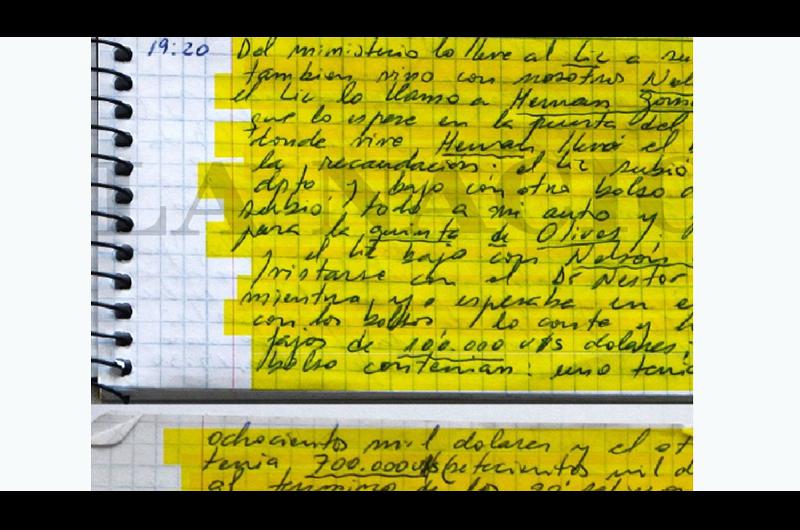 19:20 Del ministerio lo lleve al Lic a su
tambien vino con nosotros Nel
el Lic lo llamo a Hernan Gom
que lo espere en la puerta del
donde vive Hernan llevá el
la recaudación; el Lic subió
dpto y bajo con otro bolso
subió todo a mi auto y
para la quinta de Olivos y
y el Lic bajo con Nelson
con el Dr Nestor
mientras yo esperaba en e
con los bolsos, lo conte y h
fajos de 100.000 u$s dolares;
bolso contenian: uno tenia
ochocientos mil dolares y el ot
tenia 700.000 u$s (setecientos mil d
al termino de los
LA NACI